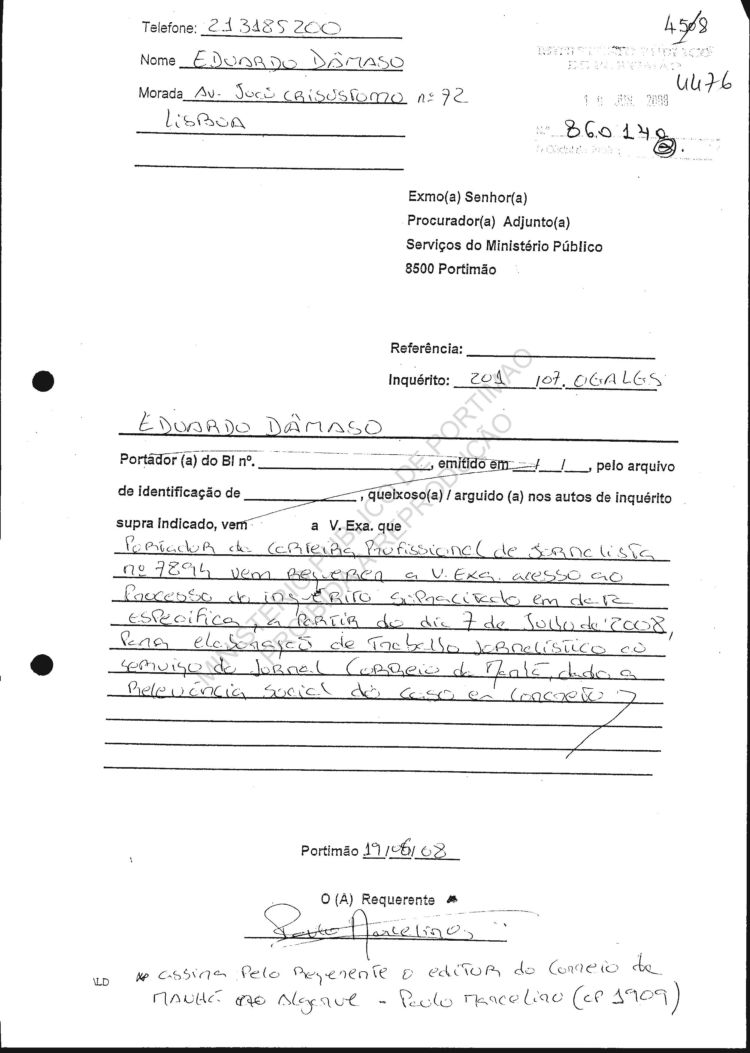 Telefone: 213185200
4508
Nome EDUARDO DÂMASO
4476
Morada Av. João CRISÓSTOMO nº 72
LISBOA
JUN. 2008
860148
Exmo(a) Senhor(a)
Procurador(a) Adjunto(a)
Serviços do Ministério Público
8500 Portimão
Referência:
Inquérito: 201 /07. 0GALGS
EDUARDO DÂMASO
Portador (a) do BI nº. , emitido em / / , pelo arquivo
de identificação de , queixoso(a) / arguido (a) nos autos de inquérito
supra indicado, vem a V. Exa. que
Portador da Carteira Profissional de Jornalista
nº 7894 vem requerer a V. Exa. acesso ao
Processo do inquérito supracitado em data
específica, a partir do dia 7 de Julho de 2008,
para elaboração de Trabalho Jornalístico ao
serviço do Jornal Correio da Manhã, dado a
Relevância Social do caso em concreto
MINISTÉRIO PÚBLICO DE PORTIMÃO
PROIBIDA A REPRODUÇÃO
Portimão 19/06/08
O (A) Requerente *
Paulo Marcelino
* assina pelo Requerente o editor do Correio da
MANHÃ no Algarve - Paulo Marcelino (CP 1909)